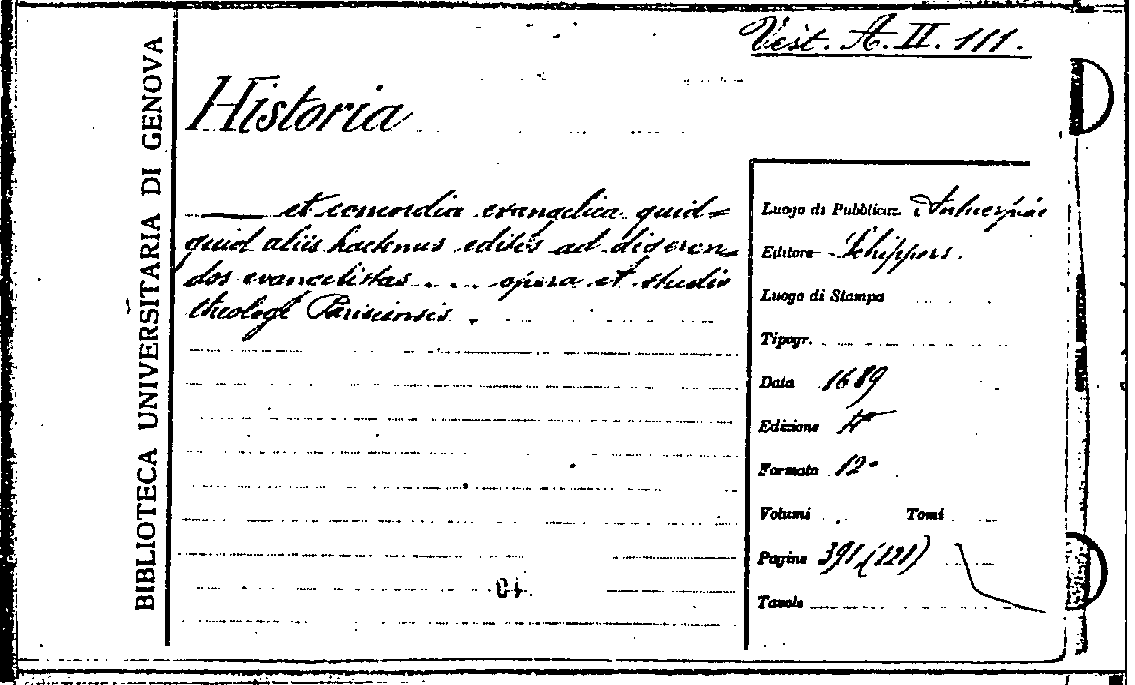 Vest. A. II. 111.
BIBLIOTECA UNIVERSITARIA DI GENOVA
Historia
et concordia evangelica quid=
quid aliis hactenus editis ad digeren=
dos evangelistas . . . opera et studio
theologi Parisiensis .
Luogo di Pubblicaz. Antuerpiae
Editore Schippers.
Luogo di Stampa
Tipogr.
Data 1689
Edizione
Formato 12°
Volumi Tomi
Pagine 391, (121)
Tavole